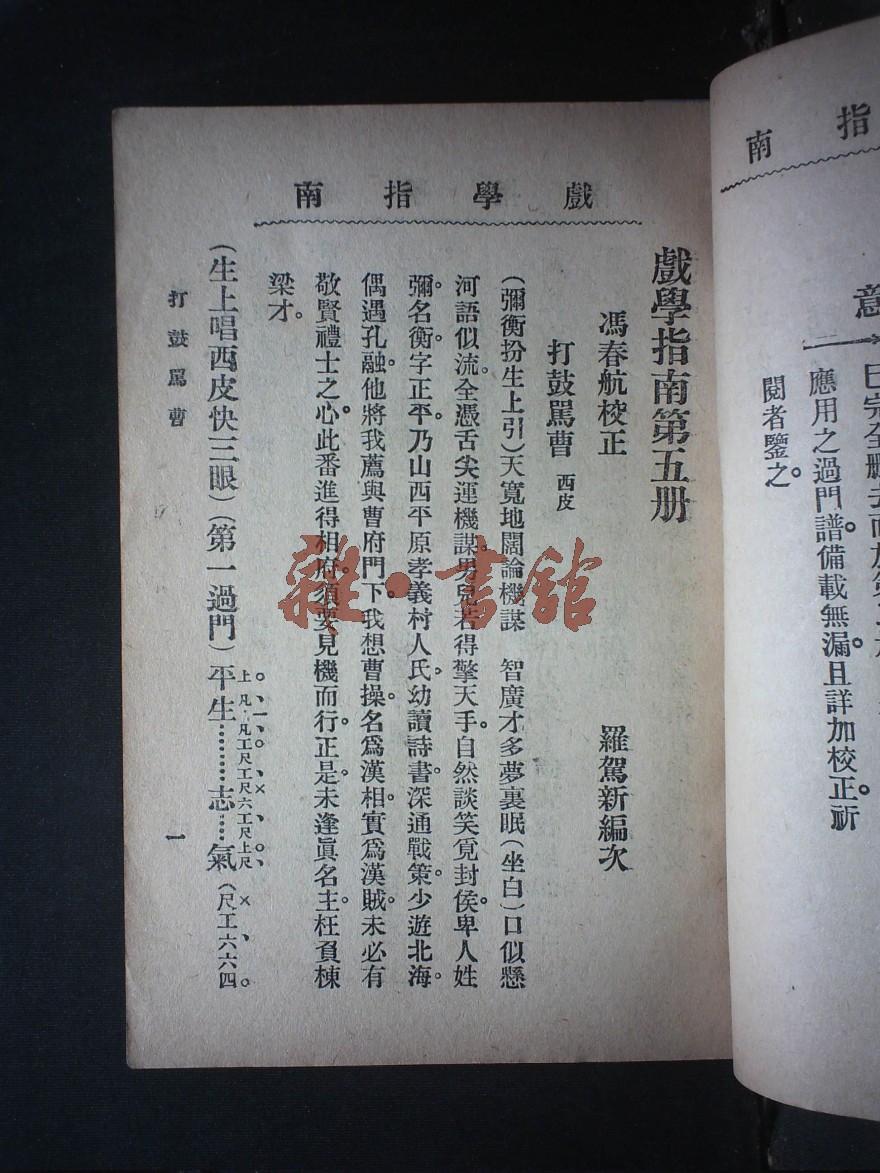 意
已完全刪去而於第
應用之過門譜備載無漏。且詳加校正祈
閱者鑒之
二
指南
戲學指南
戲學指南第五册
馮春航校正　羅駕新編次
打鼓罵曹　西皮
(彌衡扮生上引)天寬地闊論機謀　智廣才多夢裏眠(坐白)口似懸
河語似流。全憑舌尖運機謀。男兒若得擎天手。自然談笑覓封侯。卑人姓
彌。名衡字正平。乃山西平原孝義村人氏。幼讀詩書。深通戰策。少遊北海。
偶遇孔融。他將我薦與曹府門下。我想曹操。名爲漢相。實爲漢賊。未必有
敬賢禮士之心。此番進得相府。須要見機而行。正是。未逢眞名主。枉負棟
梁才。
(生上唱西皮快三眼)(第一過門)平生………志……氣(尺工六六四
上凡、凡工尺工尺六工尺上尺
打鼓罵曹
一
雜·書館